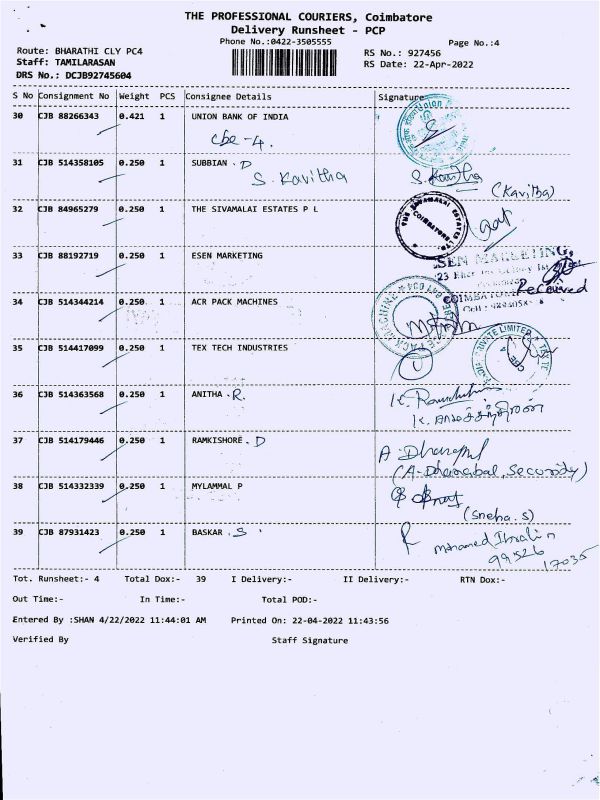 THE PROFESSIONAL COURIERS, Coimbatore
Delivery Runsheet - PCP
Phone No.:0422-3505555
Page No.:4
Route: BHARATHI CLY PC4
RS No.: 927456
Staff: TAMILARASAN
RS Date: 22-Apr-2022
DRS No.: DCJB92745604
S No Consignment No Weight PCS Consignee Details Signature
30 CJB 88266343 0.421 1 UNION BANK OF INDIA
Union
cbe-4.
31 CJB 514358105 0.250 1 SUBBIAN . D
S. Kavitha S. Kavitha
(Kavitha)
32 CJB 84965279 0.250 1 THE SIVAMALAI ESTATES P L
THE SIVAMALAI ESTATES LTD.
COIMBATORE
33 CJB 88192719 0.250 1 ESEN MARKETING
SEN MARKETING
Received
34 CJB 514344214 0.250 1 ACR PACK MACHINES
COIMBATORE
PACK MACHINE
35 CJB 514417099 0.250 1 TEX TECH INDUSTRIES
PRIVATE LIMITED
CBE
36 CJB 514363568 0.250 1 ANITHA . R.
37 CJB 514179446 0.250 1 RAMKISHORE . D
A. Dhanapal
(A-Dhanabal, Security)
38 CJB 514332339 0.250 1 MYLAMMAL P
(Sneha. S)
39 CJB 87931423 0.250 1 BASKAR . S
99526
17035
Tot. Runsheet:- 4 Total Dox:- 39 I Delivery:- II Delivery:- RTN Dox:-
Out Time:- In Time:- Total POD:-
Entered By :SHAN 4/22/2022 11:44:01 AM Printed On: 22-04-2022 11:43:56
Verified By Staff Signature